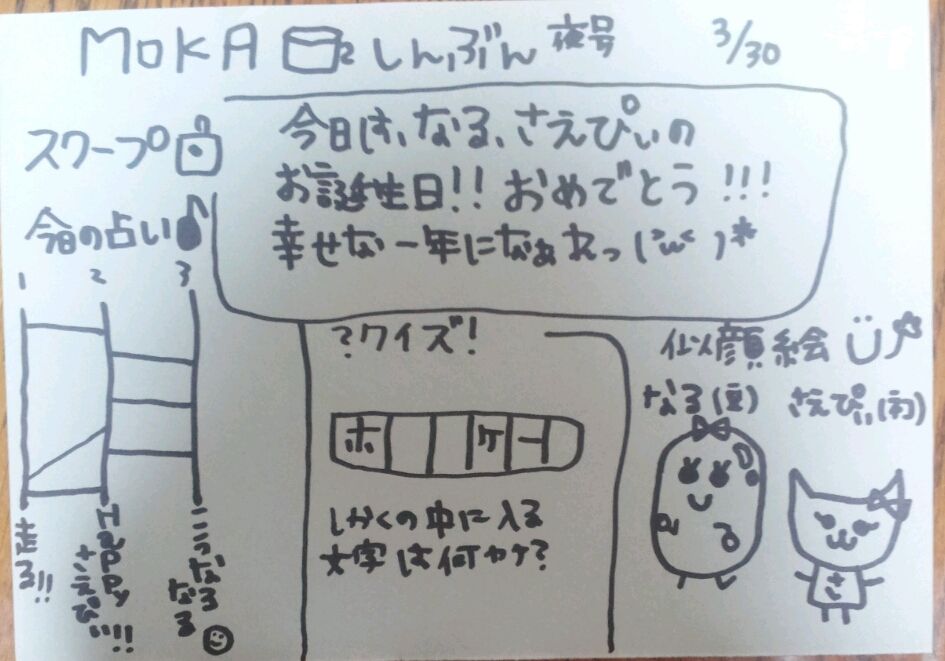 MOKA しんぶん 夜号 3/30
スクープ
今日は、なる、さえぴぃの
お誕生日!! おめでとう!!!
幸せな一年になぁれっ('ω' )*
今日の占い
1 2 3
走る!!
Happy さえぴぃ!!
にっこり なる
?クイズ!
ホ ケー
しかくの中に入る
文字は何カナ?
似顔絵
なる(豆) さえぴぃ(ネコ)
な る
さ